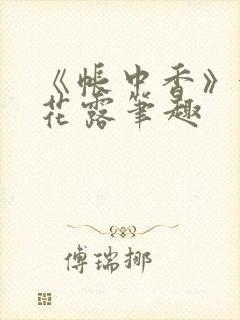 《帐中香》
花露笔趣
傅瑞挪